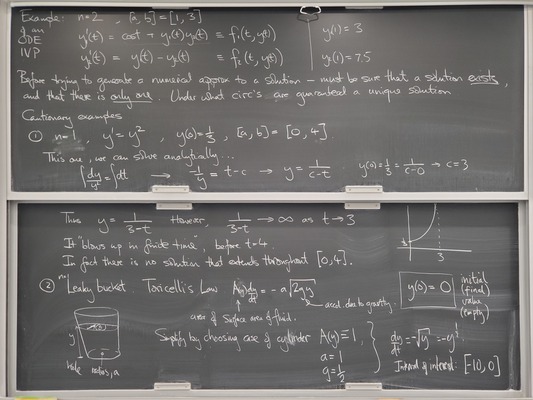 Example: n=2, [a,b]=[1,3]
of an ODE IVP
y₁'(t) = cost + y₁(t)y₂(t) ≡ f₁(t,y(t)) y₁(1) = 3
y₂'(t) = y₁(t) - y₂(t) ≡ f₂(t,y(t)) y₂(1) = 7.5
Before trying to generate a numerical approx to a solution - must be sure that a solution exists,
and that there is only one. Under what circ's are guaranteed a unique solution
Cautionary examples
① n=1, y' = y², y(0)=1/3, [a,b] = [0,4].
This one, we can solve analytically...
∫dy/y² = ∫dt → 1/y = t-c → y = 1/(c-t) y(0) = 1/3 = 1/(c-0) → c=3
Thus y = 1/(3-t) However, 1/(3-t) → ∞ as t → 3
It "blows up in finite time", before t=4.
In fact there is no solution that extends throughout [0,4].
3
② "Leaky bucket. Toricelli's Law A(y)dy/dt = -a√2gy
accel. due to gravity.
area of surface area of fluid.
y(0) = 0
initial (final) value (empty)
Simplify by choosing case of cylinder A(y)≡1,
a=1
g=1/2
dy/dt = -√y = -y^½
Interval of interest: [-10,0]
y
A(y)
hole radius, a